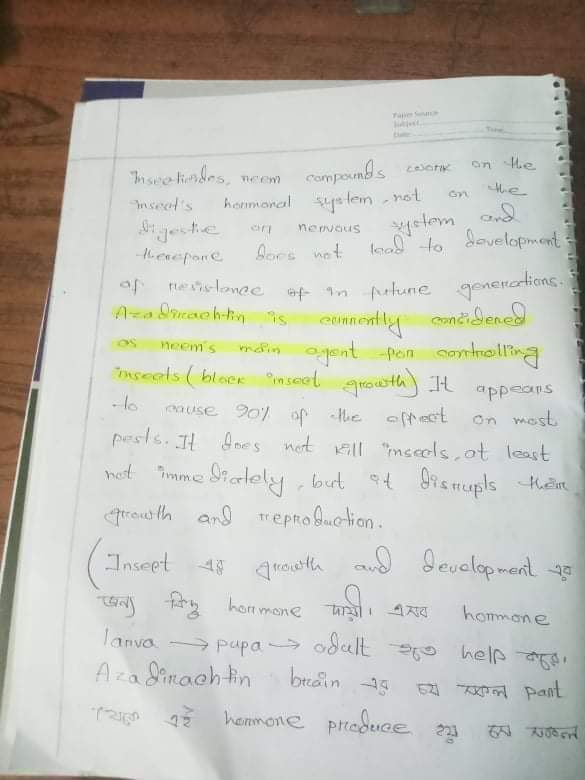 Paper Source
Subject:
Date: Time:
Insecticides, neem compounds work on the
insect's hormonal system, not on the
digestive or nervous system and
therefore does not lead to development
of resistance of in future generations.
Azadirachtin is currently considered
as neem's main agent for controlling
insects (block insect growth) It appears
to cause 90% of the effect on most
pests. It does not kill insects, at least
not immediately, but it disrupts their
growth and reproduction.
(Insect এর growth and development এর
জন্য কিছু hormone দায়ী। এসব hormone
larva → pupa → adult হতে help করে।
Azadirachtin brain এর যে সকল part
থেকে এই hormone produce হয় সে সকল